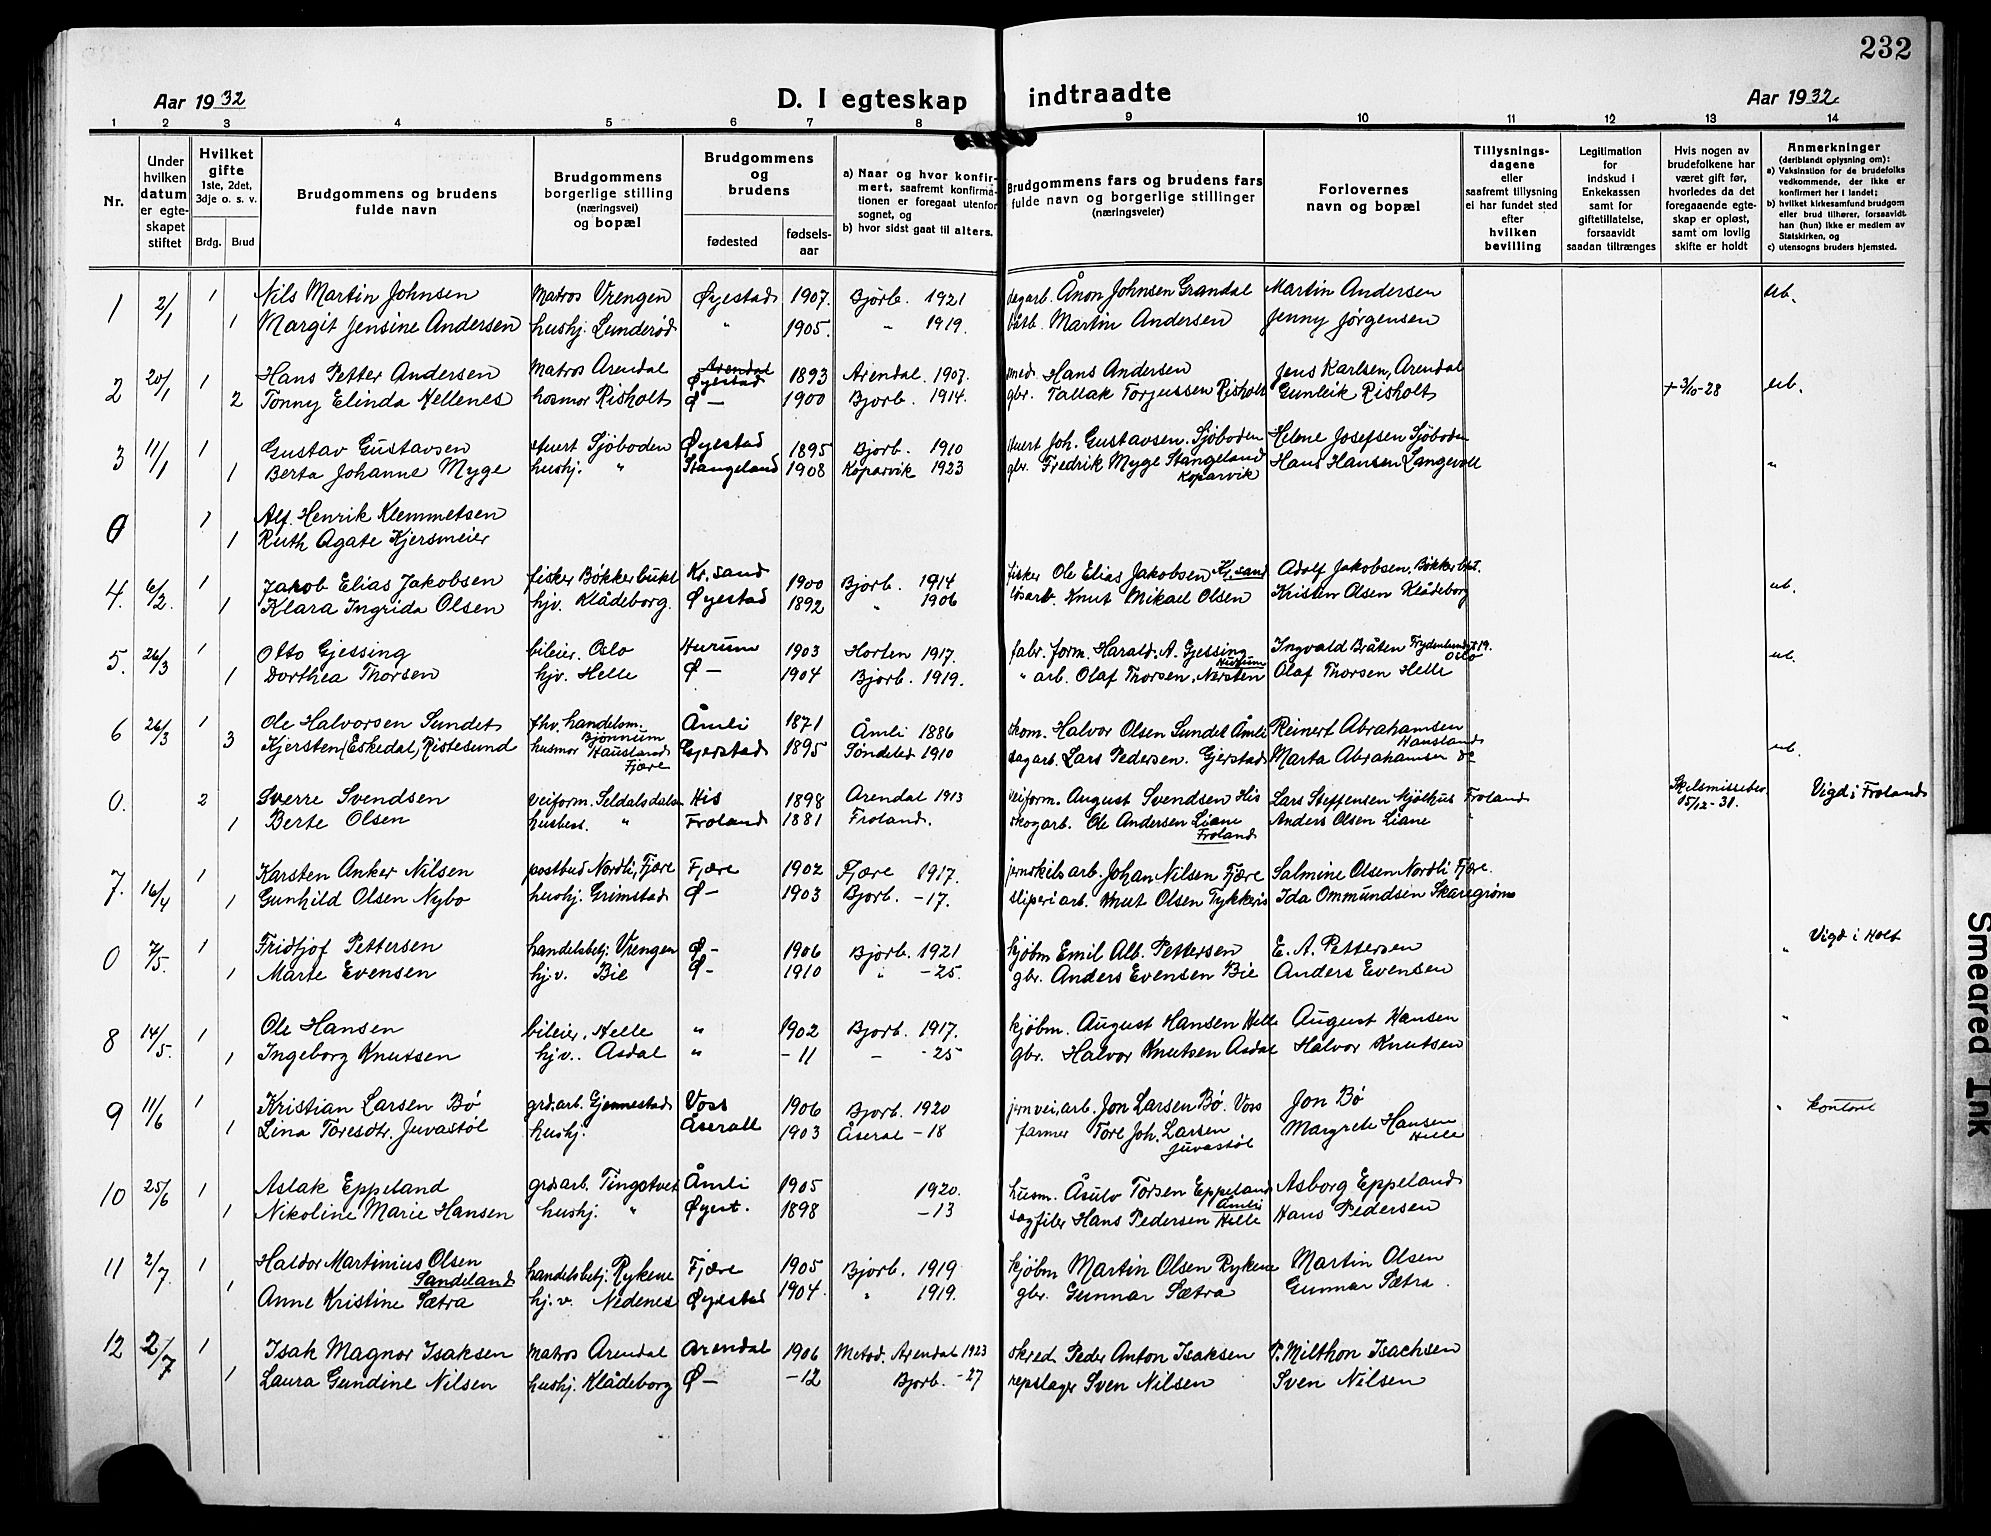 232
Aar 1932
D. I egteskap indtraadte
Aar 1932.
1 2 3 4 5 6 7 8 9 10 11 12 13 14
Nr.
Under hvilken datum er egteskapet stiftet
Hvilket gifte 1ste, 2det, 3dje o. s. v.
Brdg. Brud
Brudgommens og brudens fulde navn
Brudgommens borgerlige stilling (næringsvei) og bopæl
Brudgommens og brudens
fødested
fødsels-aar
a) Naar og hvor konfirmert, saafremt konfirmationen er foregaat utenfor sognet, og
b) hvor sidst gaat til alters.
Brudgommens fars og brudens fars fulde navn og borgerlige stillinger (næringsveier)
Forlovernes navn og bopæl
Tillysningsdagene eller saafremt tillysning ei har fundet sted efter hvilken bevilling
Legitimation for indskud i Enkekassen samt for giftetillatelse, forsaavidt saadan tiltrænges
Hvis nogen av brudefolkene har været gift før, hvorledes da det foregaaende egteskap er opløst, samt om lovlig skifte er holdt
Anmerkninger (deriblandt oplysning om):
a) Vaksination for de brudefolks vedkommende, der ikke er konfirmert her i landet;
b) hvilket kirkesamfund brudgom eller brud tilhører, forsaavidt han (hun) ikke er medlem av Statskirken, og
c) utensogns bruders hjemsted.
1 2/1 1 Nils Martin Johnsen Matros Vrengen Øyestad 1907. Bjorb. 1921 Ånon Johnsen Grandal Martin Andersen ub.
1 Margit Jensine Andersen hushj. Lunderød " 1905. " 1919. Martin Andersen Jenny Jørgensen
2 20/1 1 Hans Petter Andersen Matros Arendal Arendal Øyestad 1893 Arendal 1907. smed. Hans Andersen Jens Karlsen, Arendal
2 Tonny Elinda Hellenes hosmor Risholt Ø— 1900 Bjorb. 1914. gbr. Tallak Torjussen Risholt Gunleik Risholt + 3/10-28 ub.
3 11/1 1 Gustav Gustavsen stuert Sjøboden Øyestad 1895 Bjorb. 1910 stuert Joh. Gustavsen. Sjøboden Helene Josefsen Sjøboden
1 Berta Johanne Myge hushj. " Stangeland 1908 Koparvik 1923 gbr. Fredrik Myge Stangeland Koparvik Hans Hansen Langevoll "
0 1 Alf. Henrik Klemmetsen
1 Ruth Agate Kjersmeier
4. 6/2. 1 Jakob Elias Jakobsen fisker Bøkkerbukt Kr.sand 1900 Bjorb. 1914 fisker Ole Elias Jakobsen Kr.sand Adolf Jakobsen. Bøkkerbkt.
1 Klara Ingrida Olsen hjv. Klådeborg. Øyestad 1892 " 1906 løsarb. Knut Mikael Olsen Kristen Olsen Klådeborg ub.
5. 26/3 1 Otto Gjessing bileier. Oslo Hurum 1903 Horten 1917. fabr. form. Harald. A. Gjessing Hurum Ingvald Bråten Oslo
1 Dorthea Thorsen hjv. Helle Ø— 1904 Bjorb. 1919. " arb. Olaf Thorsen, Nersten Olaf Thorsen Helle ub.
6 26/3 1 Ole Halvorsen Sundet fhv. handelsm. Bjønnum Åmli 1871 Åmli 1886 Halvor Olsen Sundet Åmli Reinert Abrahamsen Hausland
3 Kjersten (Eskedal) Ristesund husmor Hausland Fjære Gjerstad 1895 Søndeled 1910 sagarb. Lars Pedersen. Gjerstad Marta Abrahamsen do ub.
0. 2 Sverre Svendsen veiform. Seldalsdalen His 1898 Arendal 1913 veiform. August Svendsen His Lars Steffensen Mjølhus Froland 15/12-31. Vigd i Froland
1 Berte Olsen husbest. " Froland 1881 Froland. skogarb. Ole Andersen Liane Froland Anders Olsen Liane "
7. 16/4 1 Karsten Anker Nilsen postbud Nordli, Fjære Fjære 1902 Fjære 1917. Johan Nilsen Fjære Salmine Olsen Nordli Fjære.
1 Gunhild Olsen Nybo hushj. Grimstad Ø— 1903 Bjorb. -17. sliperiarb. Knut Olsen Tykkeris Ida Ommundsen Skaregrøm
0 7/5. 1 Fridtjof Pettersen handelsbetj. Vrengen Ø- 1906 Bjorb. 1921 kjøbm Emil Alb. Pettersen E. A. Pettersen " Vigd i Holt
1 Marte Evensen hj.v. Bie Ø- 1910 " -25. gbr. Anders Evensen Bie Anders Evensen
8 14/5. 1 Ole Hansen bileier. Helle " 1902 Bjorb. 1917. kjøbm. August Hansen Helle August Hansen "
1 Ingeborg Knutsen hj.v. Asdal " -11 - -25 gbr. Halvor Knutsen Asdal Halvor Knutsen
9 11/6 1 Kristian Larsen Bø grd.arb. Gjennestad Voss 1906 Bjorb. 1920 jernvei,arb. Jon Larsen Bø. Voss Jon Bø " kontoret
1 Lina Toresdtr. Juvastøl hushj. Åserall 1903 Åseral -18 farmer Tore Joh. Larsen Juvastøl Margrete Hansen Helle
10 25/6 1 Aslak Eppeland grdsarb. Tingstveit Åmli 1905 1920. husm. Åsulv Torsen Eppeland Åmli Asborg Eppeland
1 Nikoline Marie Hansen hushj. " Øyest. 1898 -13 sagfiler Hans Pedersen Helle Hans Pedersen
11 2/7 1 Haldor Martinius Olsen Sandeland handelsbetj. Rykene Fjære 1905 Bjorb. 1919 kjøbm Martin Olsen Rykene Martin Olsen
1 Anne Kristine Sætra hj.v. Nedenes Øyestad 1904. " 1919. gbr. Gunnar Sætra Gunnar Sætra.
12 2/7 1 Isak Magnor Isaksen Matros Arendal Arendal 1906 Metod. Arendal 1923 skred. Peder Anton Isaksen P. Milthon Isachsen
1 Laura Gundine Nilsen hushj. Klådeborg Ø— -12 Bjorb. -27 repslager Sven Nilsen Sven Nilsen
Smeared Ink